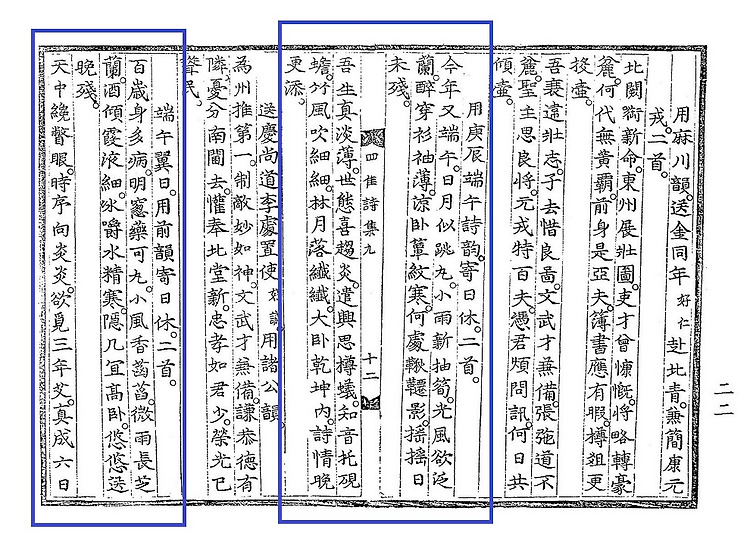 用麻川韻。送金同年好仁赴北青。兼簡康元
戎。二首。
北闕銜新命。東州展壯圖。吏才曾慷慨。將略轉豪
麁。何代無黃霸。前身是亞夫。簿書應有暇。樽俎更
投壺。
吾衰違壯志。子去惜良啚。文武才兼備。張弛道不
麁。聖主思良將。元戎特百夫。憑君煩問訊。何日共
傾壺。
用庚辰端午詩韵。寄日休。二首。
今年又端午。日月似跳丸。小雨新抽筍。光風欲泛
蘭。醉穿衫袖薄。凉臥簟紋寒。何處鞦韆影。搖搖日
未殘。
四佳詩集九 十二
吾生真淡薄。世態喜趨炎。遣興思樽蟻。知音托硯
蟾。竹風吹細細。林月落纖纖。大臥乾坤內。詩情晚
更添。
送慶尚道李處置使好誠用諸公韻。
為州推第一。制敵妙如神。文武才兼備。謙恭德有
隣。憂分南閫去。懽奉北堂新。忠孝如君少。榮光已
聳民。
端午翼日。用前韻寄日休。二首。
百歲身多病。明窓藥可丸。小風香菡萏。微雨長芝
蘭。酒傾霞液細。氷嚼水精寒。隱几宜高臥。悠悠送
晚殘。
天中纔瞥眼。時序向炎炎。欲覓三年艾。真成六日
二二